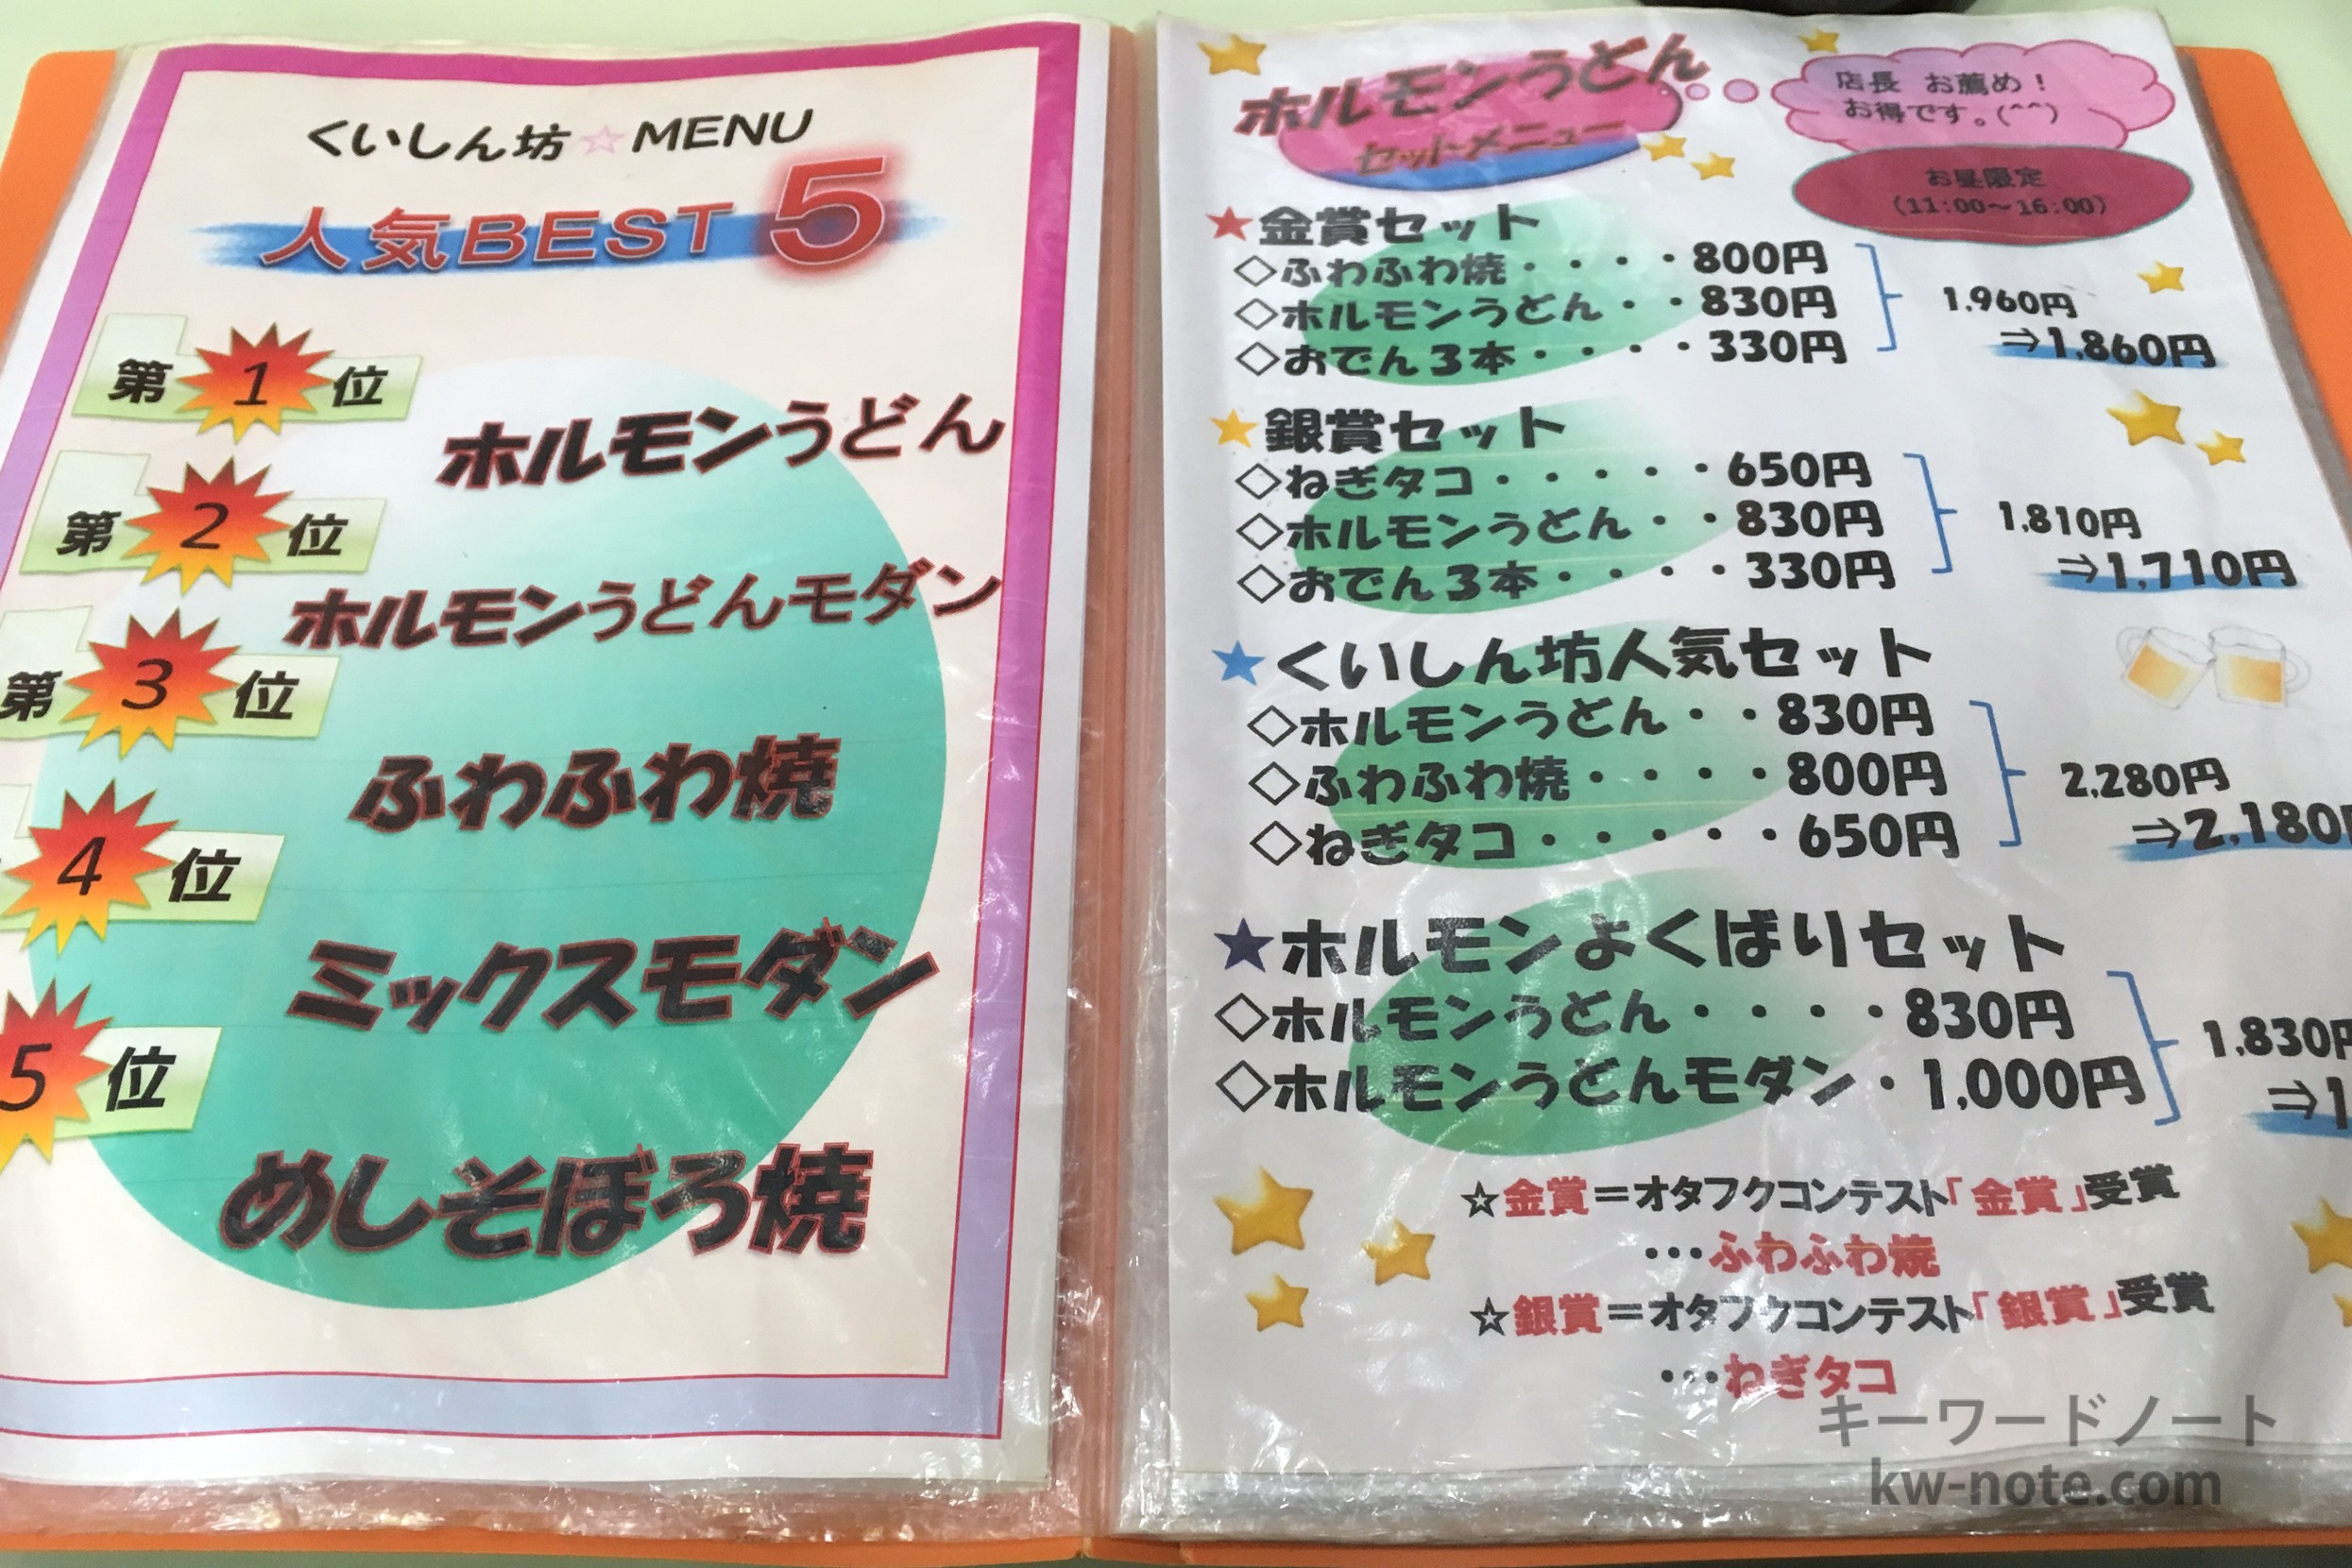 くいしん坊☆MENU
人気BEST5
第1位
ホルモンうどん
第2位
ホルモンうどんモダン
第3位
ふわふわ焼
4位
ミックスモダン
5位
めしそぼろ焼
ホルモンうどん
セットメニュー
店長 お薦め！
お得です。(^^)
お昼限定
(11:00～16:00)
★金賞セット
◇ふわふわ焼・・・・800円
◇ホルモンうどん・・830円
◇おでん３本・・・・330円
1,960円
⇒1,860円
★銀賞セット
◇ねぎタコ・・・・・650円
◇ホルモンうどん・・830円
◇おでん３本・・・・330円
1,810円
⇒1,710円
★くいしん坊人気セット
◇ホルモンうどん・・830円
◇ふわふわ焼・・・・800円
◇ねぎタコ・・・・・650円
2,280円
⇒2,180円
★ホルモンよくばりセット
◇ホルモンうどん・・・・830円
◇ホルモンうどんモダン・1,000円
1,830円
⇒1
☆金賞＝オタフクコンテスト「金賞」受賞
…ふわふわ焼
☆銀賞＝オタフクコンテスト「銀賞」受賞
…ねぎタコ
キーワードノート
kw-note.com